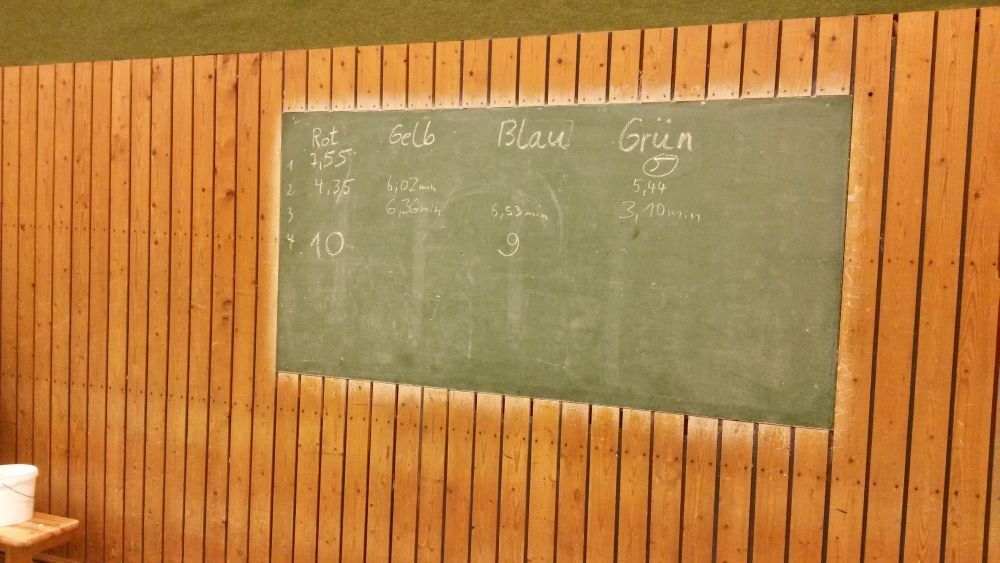 Rot Gelb Blau Grün
1 7,55 5
2 4,35 6,02 min 5,44
3 6,36 min 6,53 min 3,10 min
4 10 9